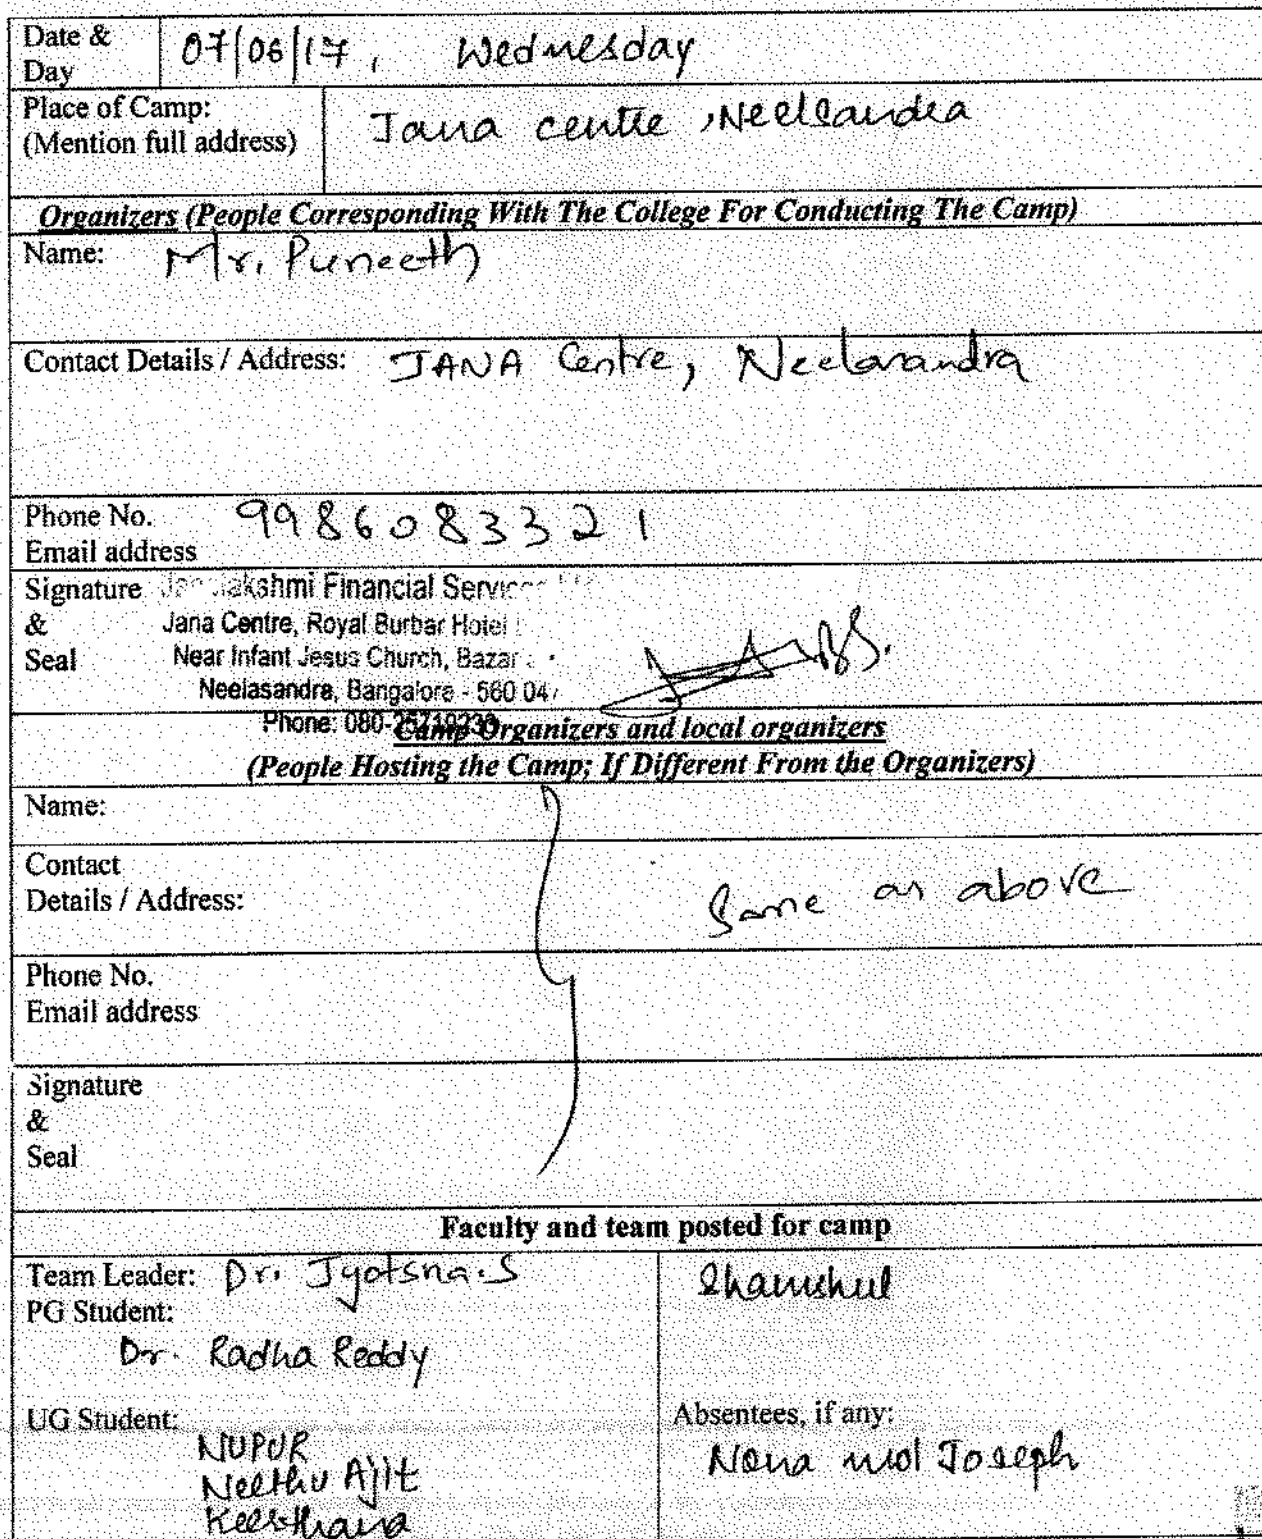 Date & Day 07/06/17, Wednesday
Place of Camp:
(Mention full address) Jana centre, Neelsandra
Organizers (People Corresponding With The College For Conducting The Camp)
Name: Mr. Puneeth
Contact Details / Address: JANA Centre, Neelasandra
Phone No. 9986083321
Email address
Signature
&
Seal
Financial
Jana Centre, Royal Burbar Hotel
Near Infant Jesus Church, Bazar
Neelasandra, Bangalore - 560 047
Phone: 080-
Camp Organizers and local organizers
(People Hosting the Camp; If Different From the Organizers)
Name:
Contact
Details / Address:
Same as above
Phone No.
Email address
Signature
&
Seal
Faculty and team posted for camp
Team Leader: Dr. Jyotsna.S
PG Student:
Dr. Radha Reddy
Shamshul
UG Student:
NUPUR
Neethu Ajit
Keerthana
Absentees, if any:
Nona mol Joseph